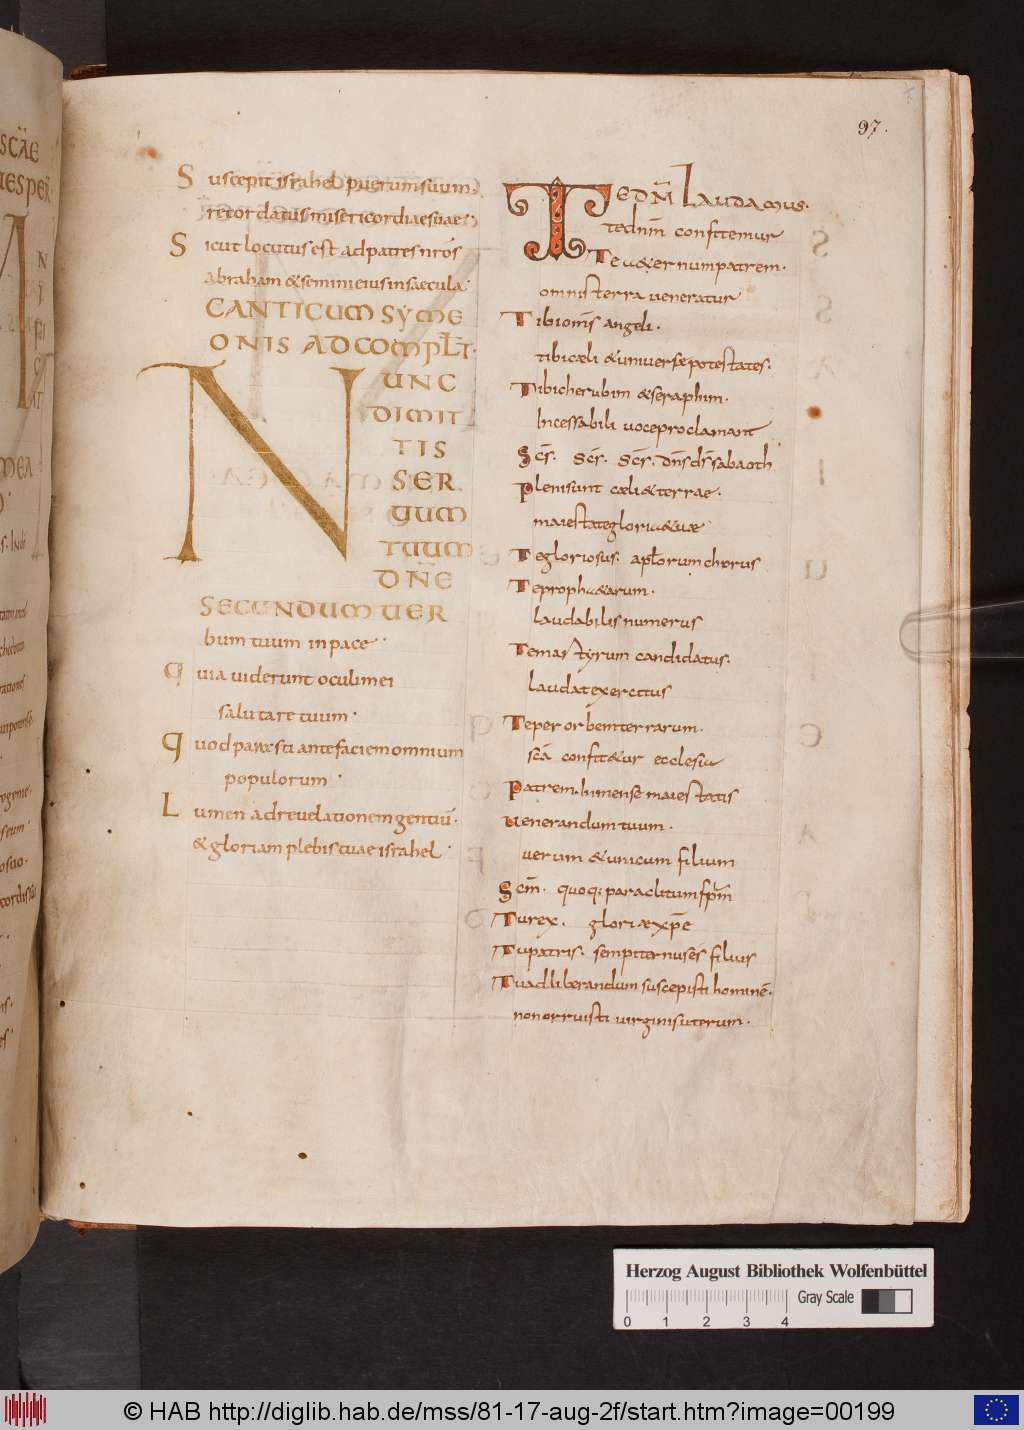 97.
Suscepit israhel puerum suum.
recordatus misericordiae suae.
Sicut locutus est ad patres nr̄os
abraham & semini eius in saecula
CANTICUM SYME
ONIS AD COMPLT̄.
NUNC
DIMIT
TIS
SER
UUM
TUUM
DÑE
SECUNDUM UER
bum tuum in pace
Quia uiderunt oculi mei
salutare tuum.
Quod parasti ante faciem omnium
populorum.
Lumen ad reuelationem gentiū.
& gloriam plebis tuae israhel.
TE DM̄ LAUDAMUS.
te dnm̄ confitemur
Te &ernum patrem.
omnis terra ueneratur
Tibi omn̄s angeli.
tibi cæli & uniuersæ potestates.
Tibi cherubim & seraphim.
Incessabili uoce proclamant
Scs̄. Scs̄. Scs̄. dn̄s ds̄ sabaoth
Pleni sunt cæli & terrae.
maiestate gloriae tuae
Te gloriosus. aptorum chorus
Te proph&arum.
laudabilis numerus
Te martyrum candidatus.
laudat exercitus
Te per orbem terrarum.
scā confit&ur ecclesia
Patrem. Inmense maiestatis
Uenerandum tuum.
uerum & unicum filium
Scm̄. quoq; paraclitum spm̄
Tu rex. gloriæ xp̄e
Tu patris. sempiternus es filius
Tu ad liberandum suscepisti hominē.
non orruisti uirginis uterum.
Herzog August Bibliothek Wolfenbüttel
Gray Scale
0 1 2 3 4
© HAB http://diglib.hab.de/mss/81-17-aug-2f/start.htm?image=00199